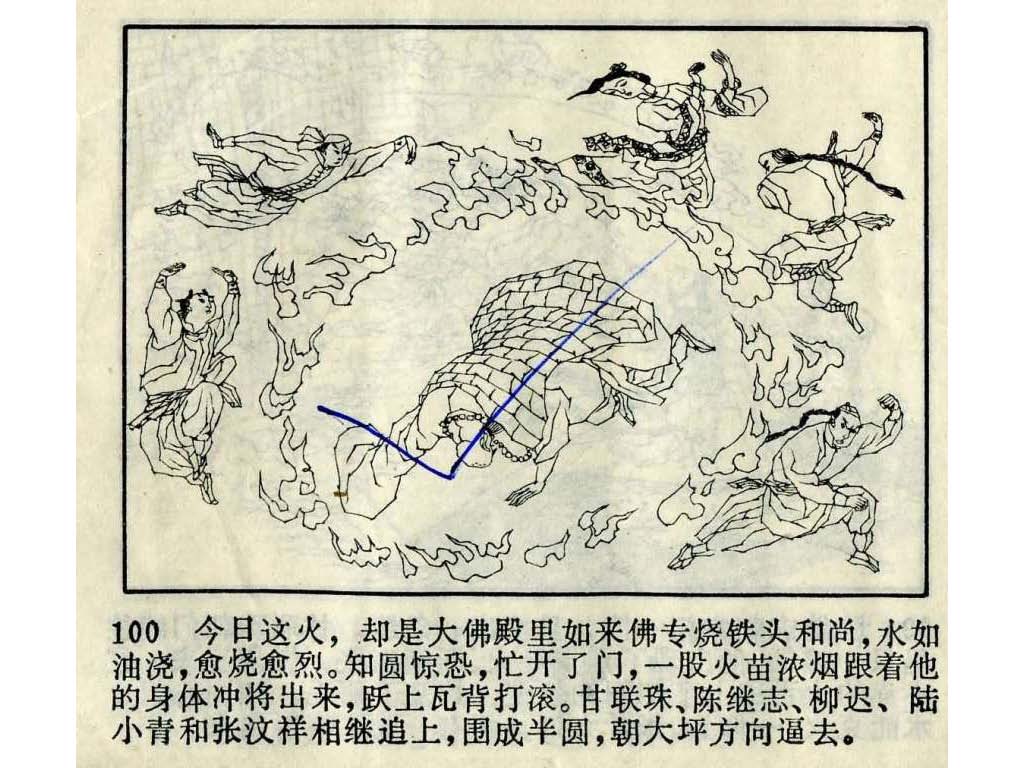 100 今日这火，却是大佛殿里如来佛专烧铁头和尚，水如
油浇，愈烧愈烈。知圆惊恐，忙开了门，一股火苗浓烟跟着他
的身体冲将出来，跃上瓦背打滚。甘联珠、陈继志、柳迟、陆
小青和张汶祥相继追上，围成半圆，朝大坪方向逼去。